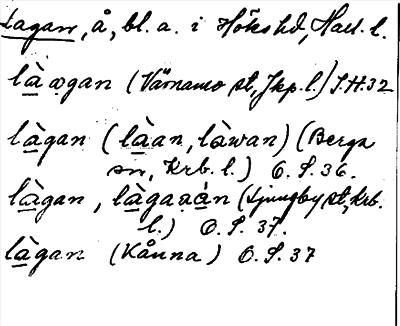 Lagan, å, bl. a. i Höks hd, Hall. l.
là̠gan (Värnamo st, Jkp. l.) S.H. 32
là̠gan (là̠an, làwan) (Berga
sn, Krb. l.) O.S. 36.
là̠gan, là̠gaṇán (Ljungby st, Krb.
l.) O.S. 37.
là̠gan (Kånna) O.S. 37